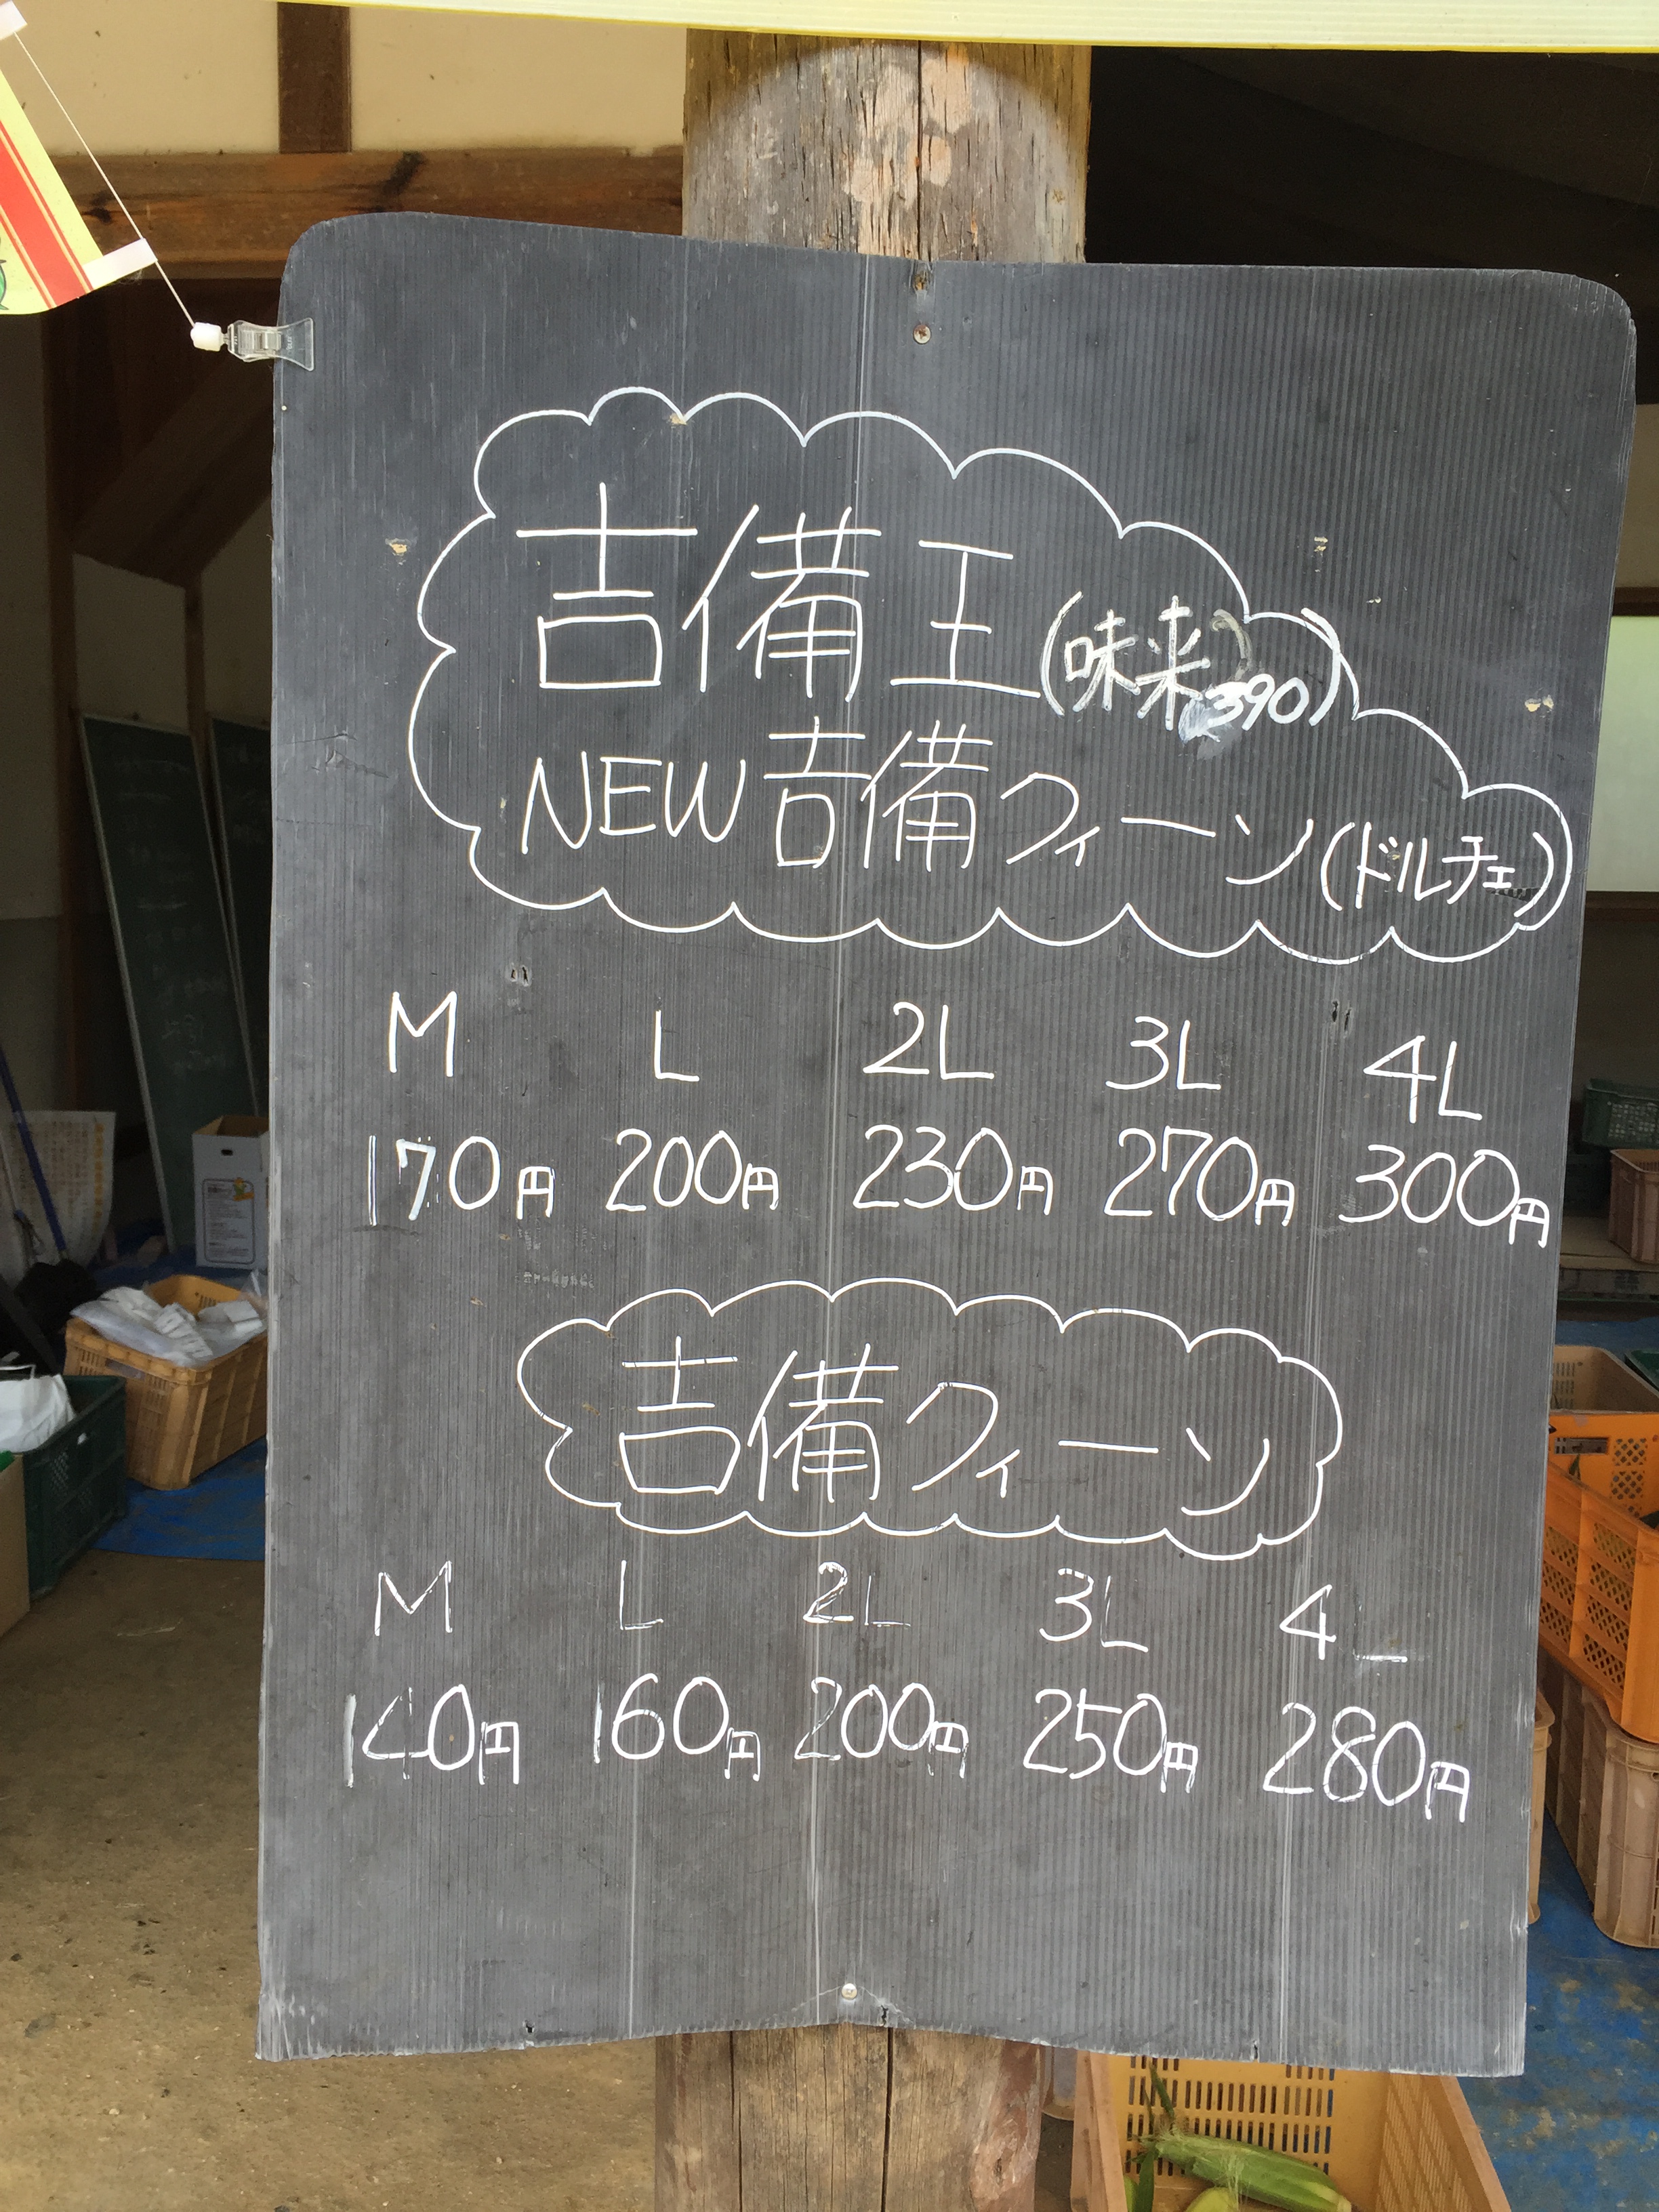 吉備王(味来390)
NEW吉備クィーン(ドルチェ)
M L 2L 3L 4L
170円 200円 230円 270円 300円
吉備クィーン
M L 2L 3L 4L
140円 160円 200円 250円 280円